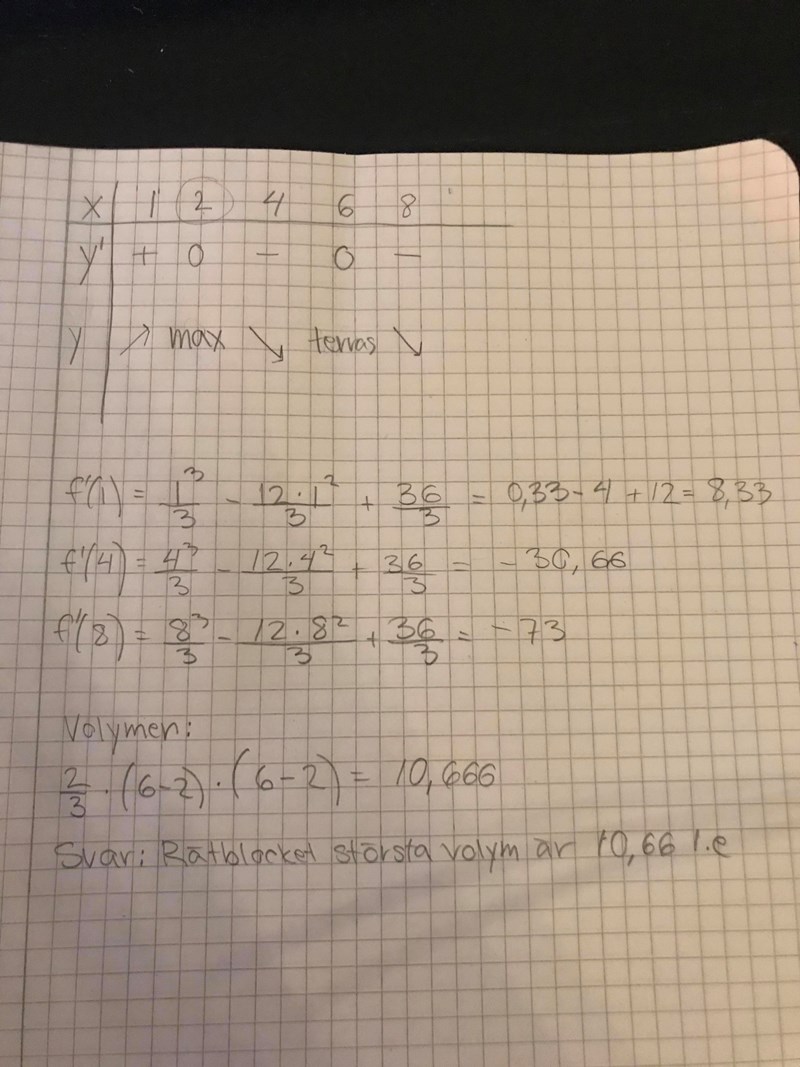 x | 1 2 4 6 8
y' | + 0 − 0 −
y | ↗ max ↘ terras ↘
f'(1) = 1³/3 − 12·1²/3 + 36/3 = 0,33 − 4 + 12 = 8,33
f'(4) = 4³/3 − 12·4²/3 + 36/3 = −30,66
f'(8) = 8³/3 − 12·8²/3 + 36/3 = −73
Volymen:
2/3 · (6−2) · (6−2) = 10,666
Svar: Rätblocket största volym är 10,66 l.e